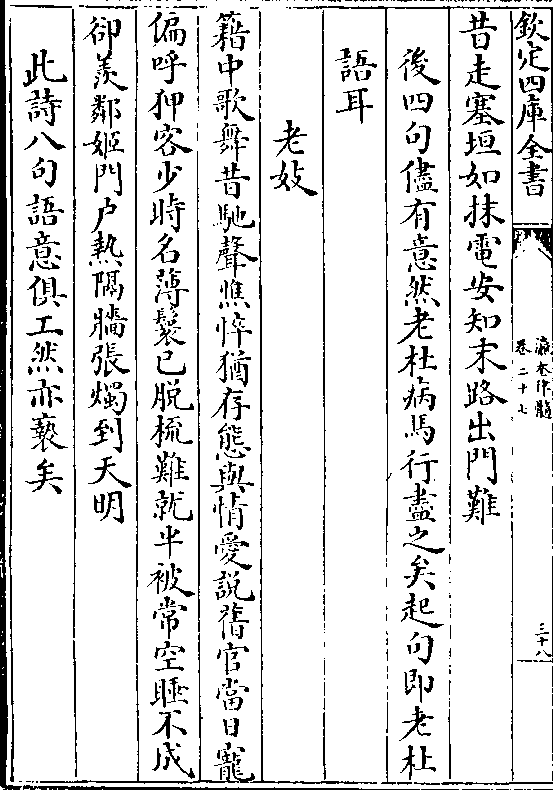 欽定四庫全書
瀛奎律髓
卷二十七
三十八
昔走塞垣如抹電安知末路出門難
後四句儘有意然老杜病馬行盡之矣起句即老杜
語耳
老妓
籍中歌舞昔馳聲憔悴猶存態與情愛說舊官當日寵
偏呼狎客少時名薄鬟已脫梳難就半被常空睡不成
卻羨鄰姬門户熱隔牆張燭到天明
此詩八句語意俱工然亦褻矣